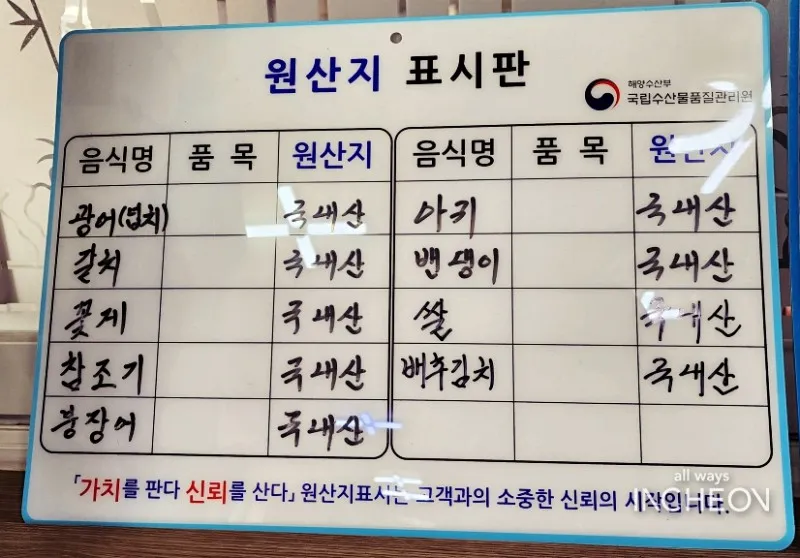 원산지 표시판
해양수산부
국립수산물품질관리원
음식명 품목 원산지 음식명 품목 원산지
광어(넙치) 국내산 아귀 국내산
갈치 국내산 밴댕이 국내산
꽃게 국내산 쌀 국내산
참조기 국내산 배추김치 국내산
붕장어 국내산
「가치를 판다 신뢰를 산다」 원산지표시는 고객과의 소중한 신뢰의 시작입니다.
all ways
INCHEON